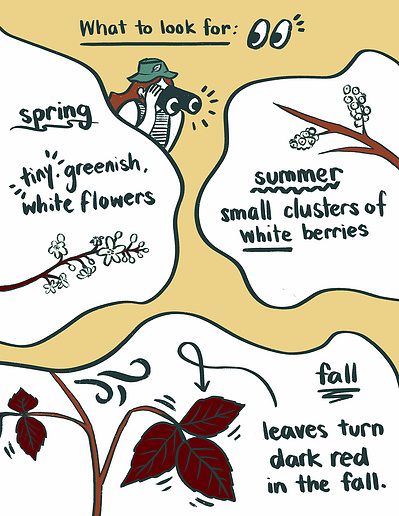 What to look for:
spring
tiny greenish,
white flowers
summer
small clusters of
white berries
fall
leaves turn
dark red
in the fall.